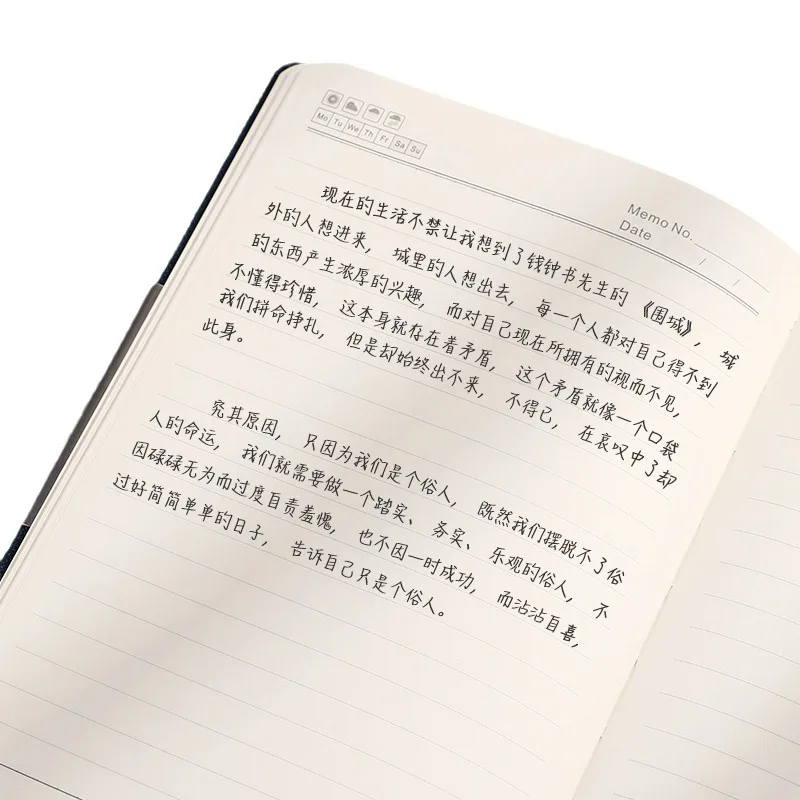 Mo Tu We Th Fr Sa Su
Memo No.
Date / /
现在的生活不禁让我想到了钱钟书先生的《围城》，城
外的人想进来，城里的人想出去，每一个人都对自己得不到
的东西产生浓厚的兴趣，而对自己现在所拥有的视而不见，
不懂得珍惜，这本身就存在着矛盾，这个矛盾就像一个口袋
我们拼命挣扎，但是却始终出不来，不得已，在哀叹中了却
此身。
究其原因，只因为我们是个俗人，既然我们摆脱不了俗
人的命运，我们就需要做一个踏实、务实、乐观的俗人，不
因碌碌无为而过度自责羞愧，也不因一时成功，而沾沾自喜，
过好简简单单的日子，告诉自己只是个俗人。